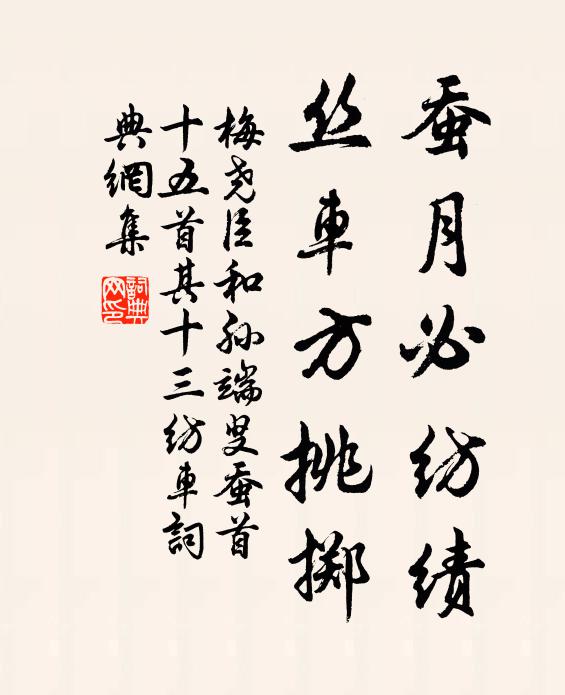 蚕月必纺绩
丝車方挑掷
梅尧臣和孙端叟蚕首
十五首其十三纺車詞
典網集
詞典网印